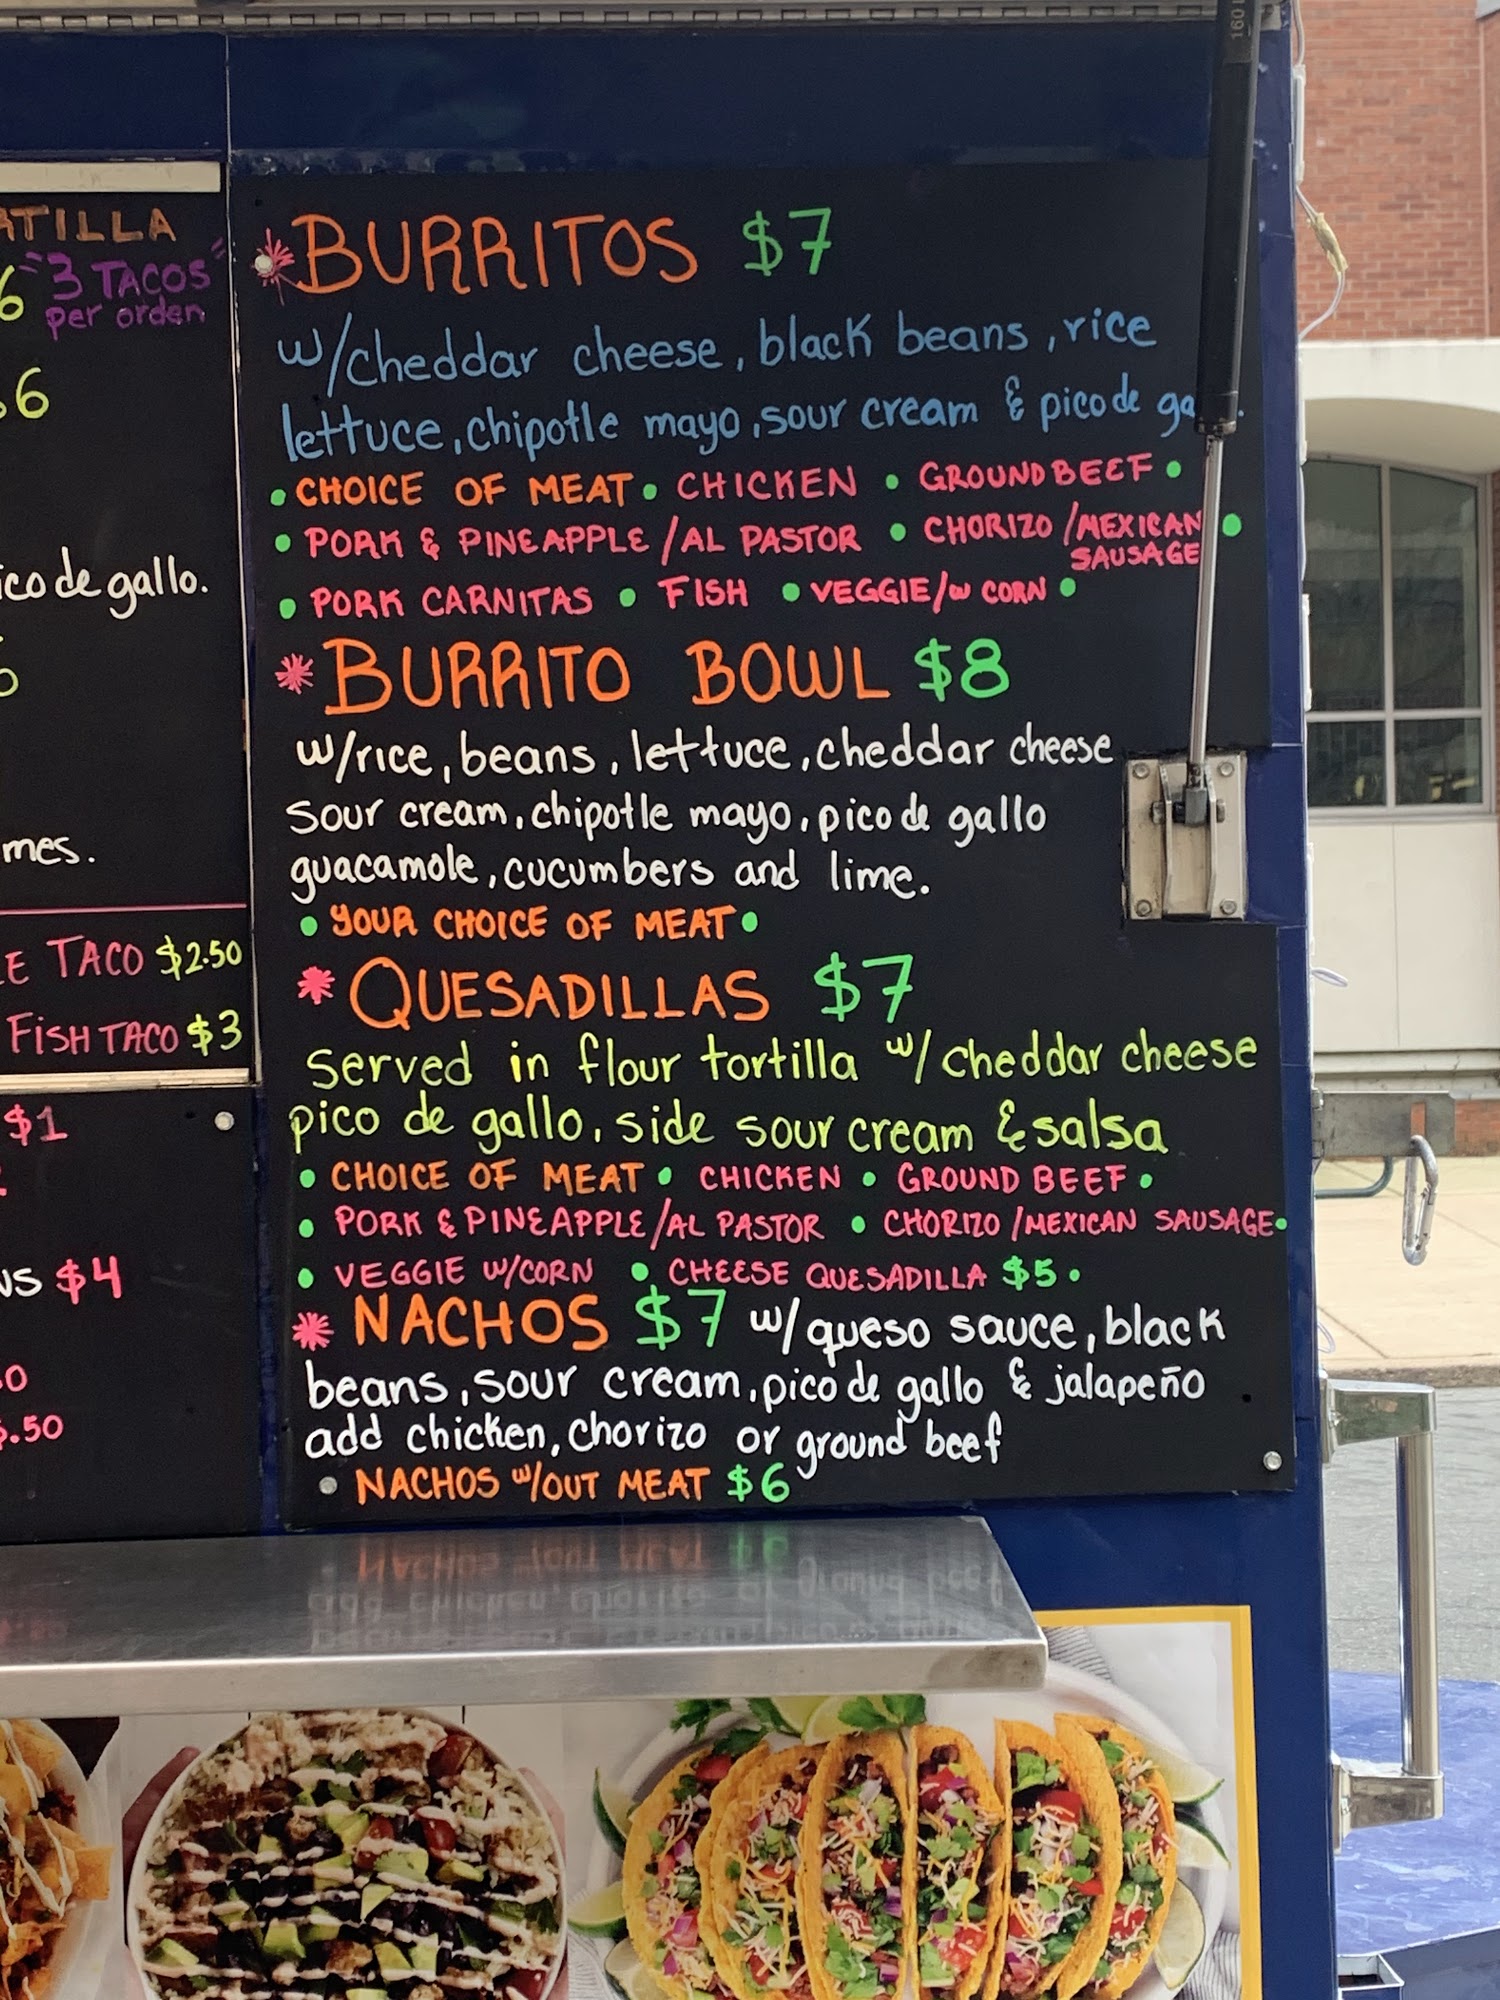 TILLA
6 "3 TACOS"
per orden
$6
ico de gallo.
mes.
TACO $2.50
FISH TACO $3
$1
$4
.50
*BURRITOS $7
w/cheddar cheese, black beans, rice
lettuce, chipotle mayo, sour cream & pico de
• CHOICE OF MEAT • CHICKEN • GROUND BEEF •
• PORK & PINEAPPLE/AL PASTOR • CHORIZO/MEXICAN •
SAUSAGE
• PORK CARNITAS • FISH • VEGGIE/w CORN •
* BURRITO BOWL $8
w/rice, beans, lettuce, cheddar cheese
sour cream, chipotle mayo, pico de gallo
guacamole, cucumbers and lime.
• YOUR CHOICE OF MEAT •
* QUESADILLAS $7
served in flour tortilla w/cheddar cheese
pico de gallo, side sour cream & salsa
• CHOICE OF MEAT • CHICKEN • GROUND BEEF •
• PORK & PINEAPPLE/AL PASTOR • CHORIZO/MEXICAN SAUSAGE •
• VEGGIE w/CORN • CHEESE QUESADILLA $5 •
* NACHOS $7 w/queso sauce, black
beans, sour cream, pico de gallo & jalapeño
add chicken, chorizo or ground beef
NACHOS w/OUT MEAT $6